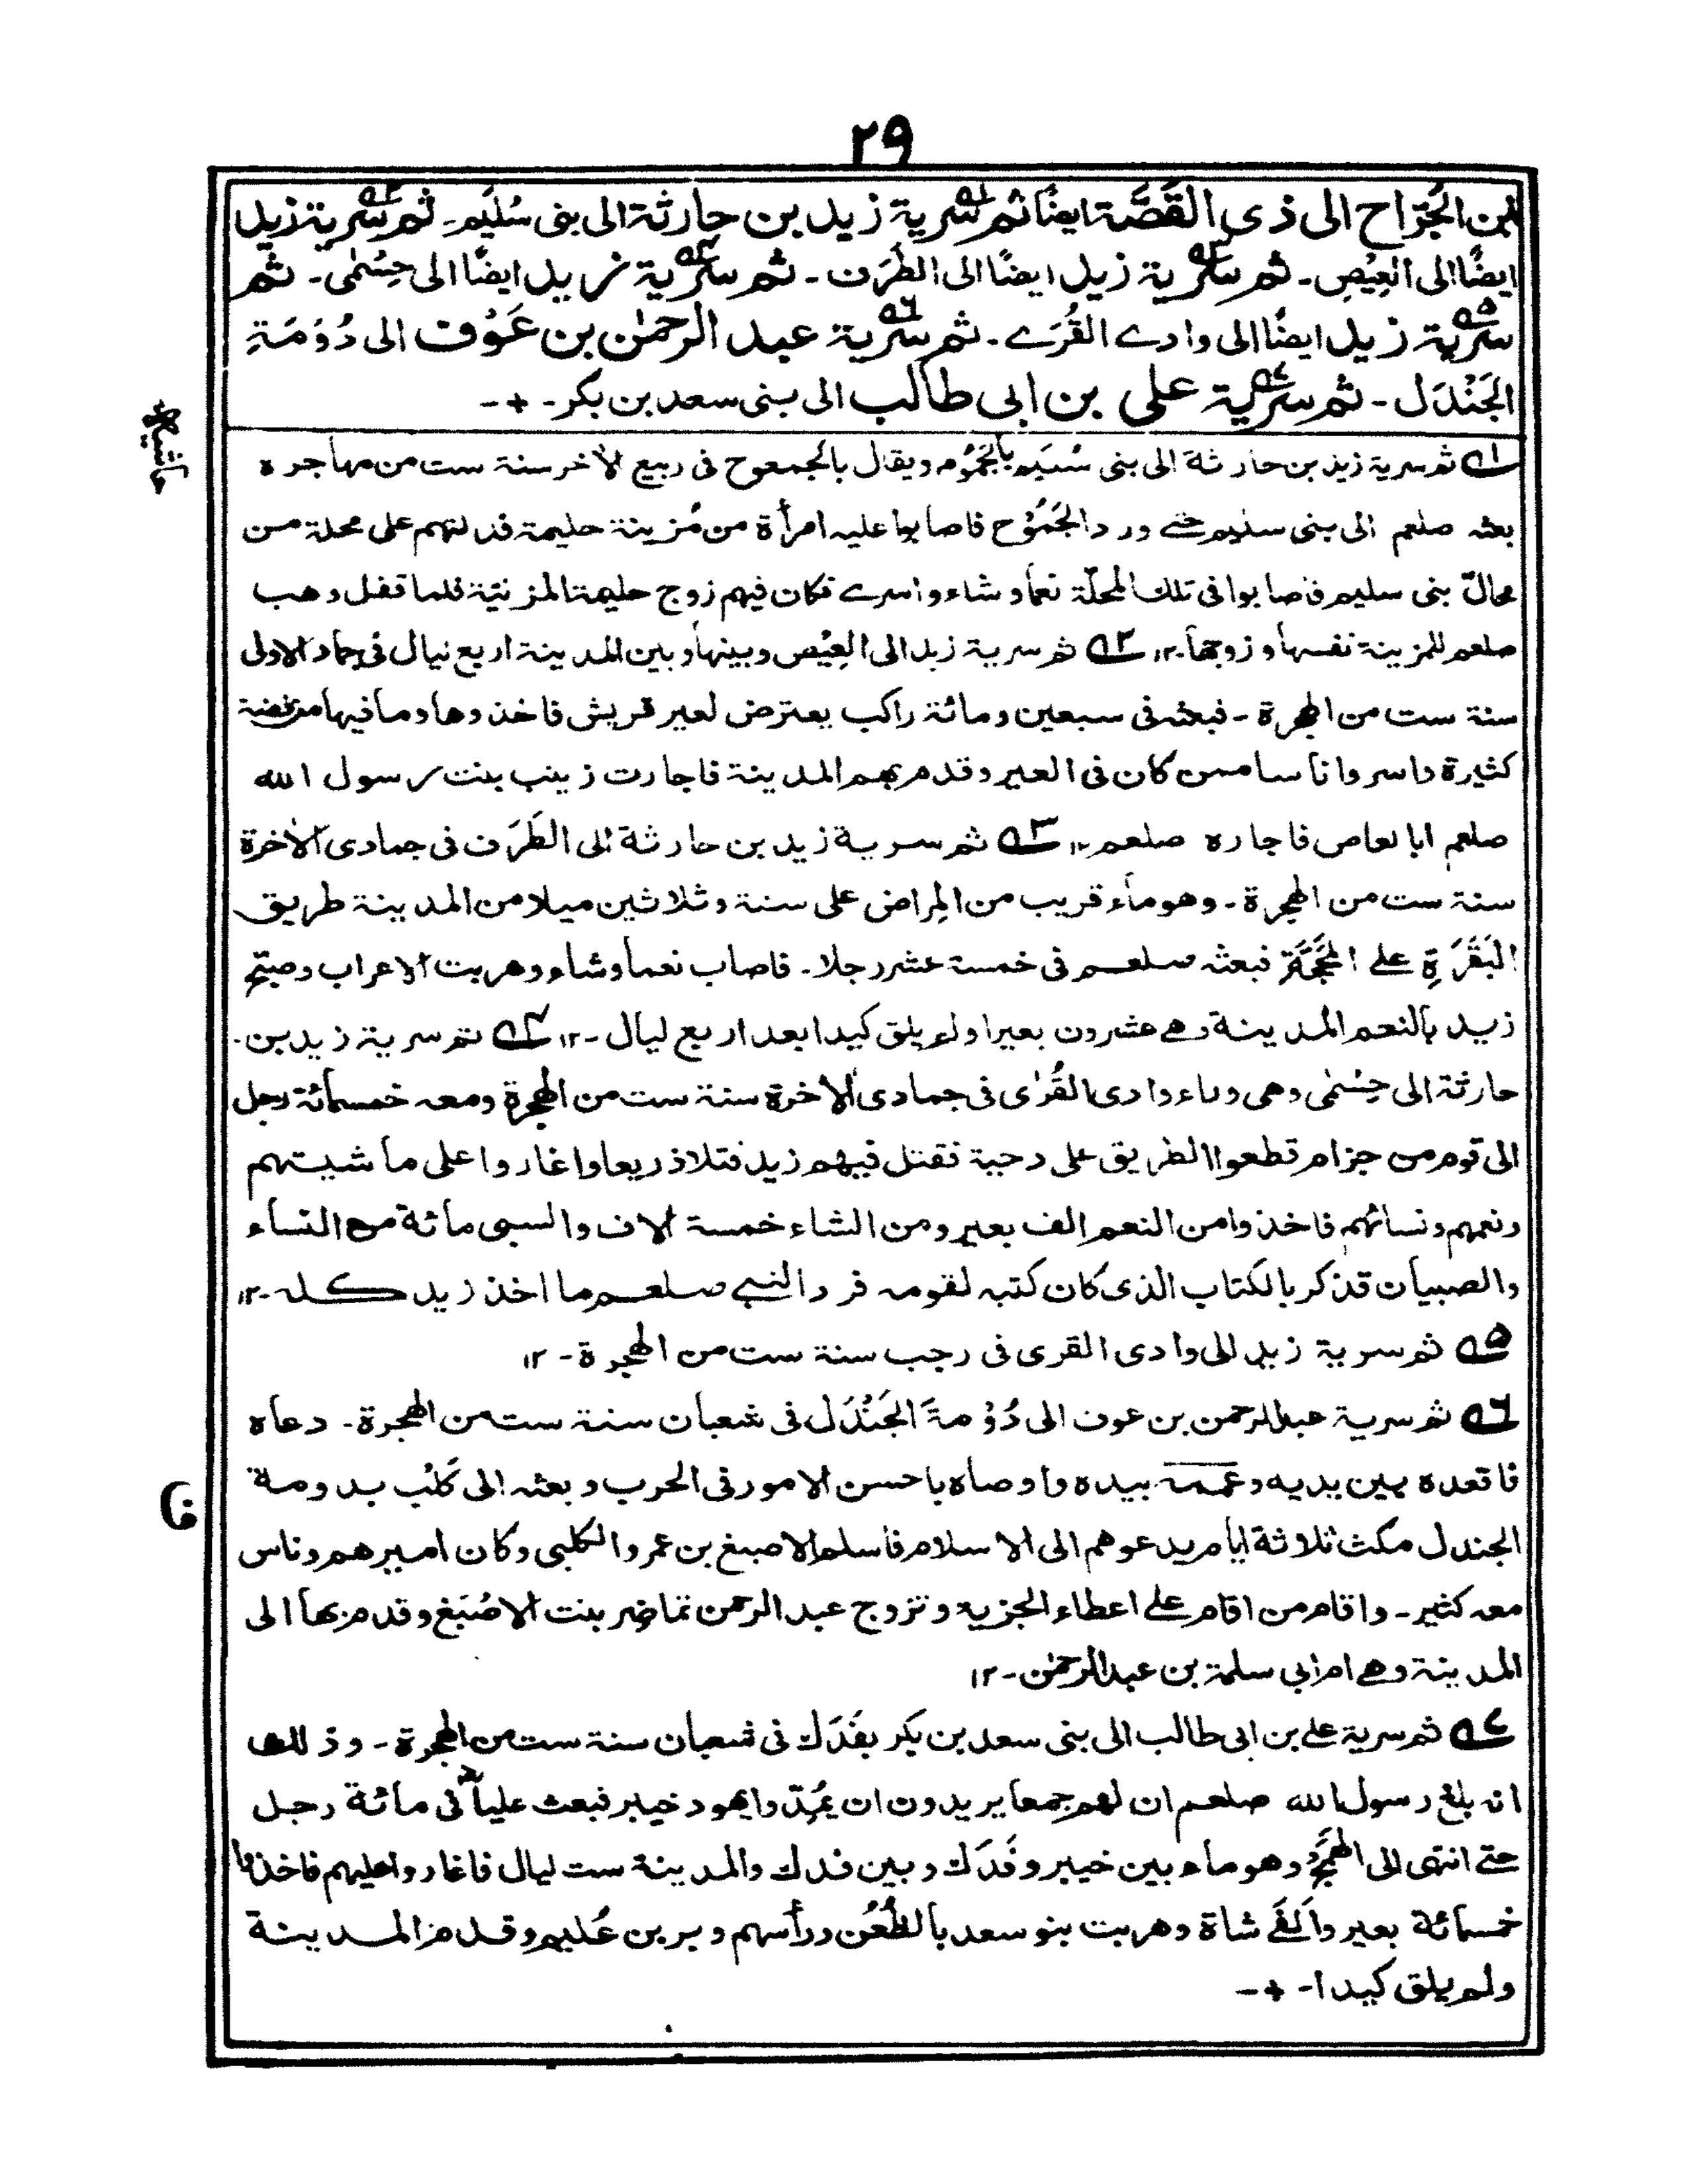 ٢٩
بن الجَرّاح الى ذى القَصَّة ايضًا ثم سرية زيد بن حارثة الى بنى سُلَيم۔ ثم سرية زيد
ايضًا الى العِيْصِ۔ ثم سرية زيد ايضًا الى الطَرَف۔ ثم سرية زيد ايضًا الى حِسْمٰى۔ ثم
سرية زيد ايضًا الى وادے القُرَے۔ ثم سرية عبد الرحمٰن بن عَوْف الى دُوْمَةِ
الجَنْدَل۔ ثم سرية على بن ابى طالب الى بنى سعد بن بكر۔ +۔
حاشيه
١ ثم سرية زيد بن حارثة الى بنى سُلَيم بالجَمُوم ويقال بالجموح فى ربيع الاخر سنة ست من مهاجره
بعثه صلعم الى بنى سليم حتے ورد الجَمُوْح فاصابوا عليه امرأة من مُزينة حليمة فدلتهم على محلة من
محالّ بنى سليم فاصابوا فى تلك المحلّة نعما وشاء واسرے فكان فيهم زوج حليمة المزنيّة فلما قفل وهب
صلعم للمزينة نفسها وزوجها۔١٢ ٢ ثم سرية زيد الى العِيْص وبينها وبين المدينة اربع ليال فى جماد الاولى
سنة ست من الهجرة ۔ فبعثه فى سبعين ومائة راكب يعترض لعير قريش فاخذوها وما فيها من فضة
كثيرة واسروا ناسا ممن كان فى العير وقدم بهم المدينة فاجارت زينب بنت رسول الله
صلعم ابا لعاص فاجاره صلعم ١٢ ٣ ثم سرية زيد بن حارثة الى الطَرَف فى جمادى الاخرة
سنة ست من الهجرة ۔ وهو ماء قريب من المِراض على ستة وثلاثين ميلا من المدينة طريق
البَقَرَةِ علے المَحَجَّة فبعثه صلعم فى خمسة عشر رجلا۔ فاصاب نعما وشاء وهربت الاعراب وصبّح
زيد بالنعم المدينة وهے عشرون بعيرا ولم يلق كيدا بعد اربع ليال ۔١٢ ٤ ثم سرية زيد بن۔
حارثة الى حِسْمٰى وهى وراء وادى القُرٰى فى جمادى الاخرة سنة ست من الهجرة ومعه خمسمائة رجل
الى قوم من جزام قطعوا الطريق على دحية فقتل فيهم زيد قتلا ذريعا واغاروا على ماشيتهم
ونعمهم ونسائهم فاخذوا من النعم الف بعير ومن الشاء خمسة الاف والسبى مائة من النساء
والصبيان فذكر بالكتاب الذى كان كتبه لقومه فرد النبے صلعم ما اخذ زيد كله۔١٢
٥ ثم سرية زيد الى وادى القرى فى رجب سنة ست من الهجرة ۔ ١٢
٦ ثم سرية عبد الرحمن بن عوف الى دُوْمةَ الجَنْدَل فى شعبان سنة ست من الهجرة۔ دعاه
فا
فاقعده بين يديه وعممه بيده واوصاه باحسن الامور فى الحرب وبعثه الى كَلْب بدومة
الجندل مكث ثلاثة ايام يدعوهم الى الاسلام فاسلم الاصبغ بن عمرو الكلبى وكان اميرهم وناس
معه كثير۔ واقام من اقام علے اعطاء الجزية وتزوج عبد الرحمن تماضر بنت الاصْبَغ وقدم بها الى
المدينة وهے ام ابي سلمة بن عبد الرحمٰن۔١٢
٧ ثم سرية علے بن ابى طالب الى بنى سعد بن بكر بفَدَك فى شعبان سنة ست من الهجرة ۔ وذلك
انه بلغ رسول الله صلعم ان لهم جمعا يريدون ان يُمِدّوا يهود خيبر فبعث عليا فى مائة رجل
حتے انتهى الى الهمج وهو ماء بين خيبر وفَدَك وبين فدك والمدينة ست ليال فاغاروا عليهم فاخذوا
خمسمائة بعير وألفَے شاة وهربت بنو سعد بالظُعُن ورأسهم وبر بن عُليم وقدم المدينة
ولم يلق كيدا۔ +۔